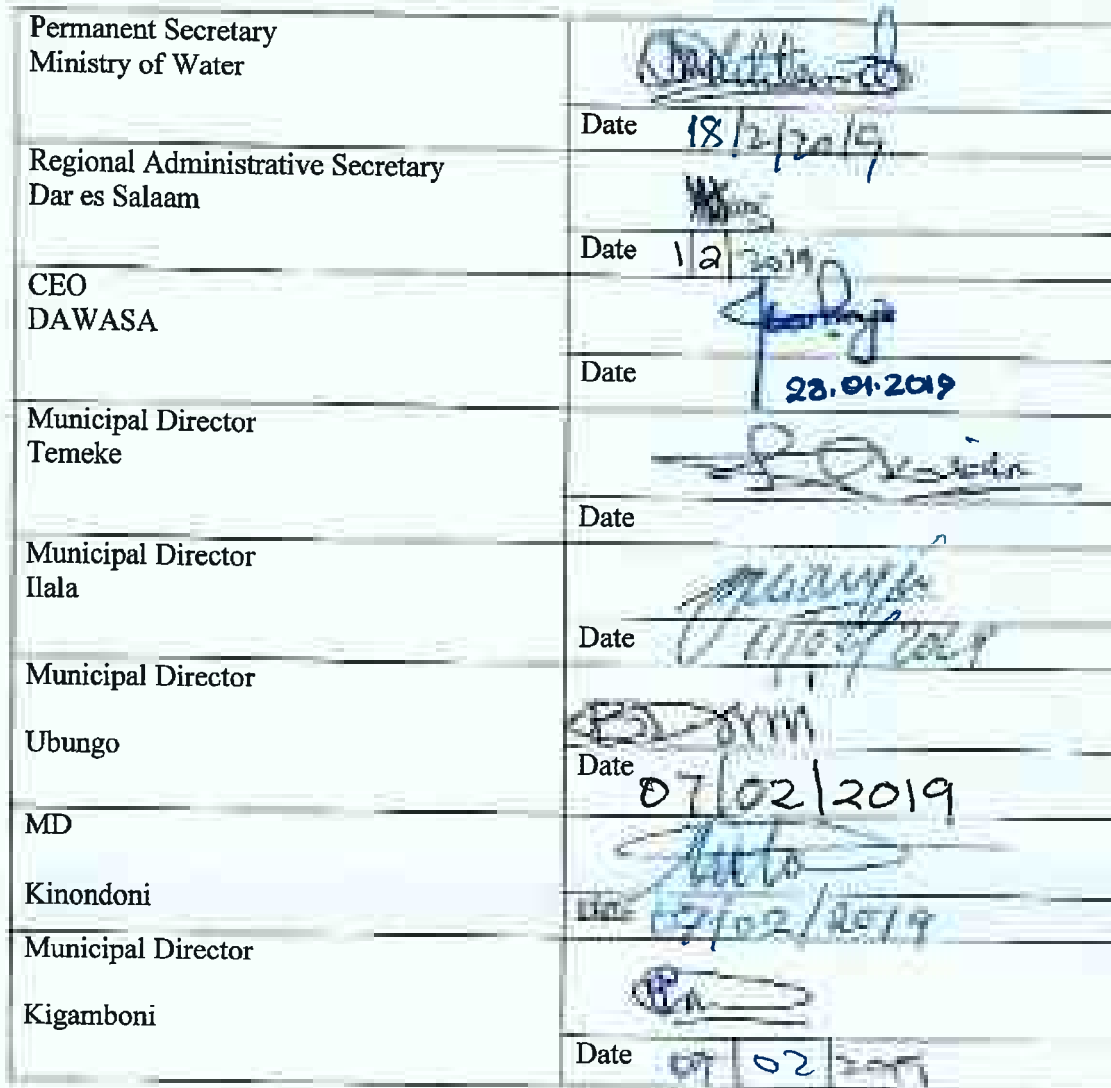 Permanent Secretary
Ministry of Water
Date 18/2/2019
Regional Administrative Secretary
Dar es Salaam
Date 1/2/2019
CEO
DAWASA
Date 28.01.2019
Municipal Director
Temeke
Date
Municipal Director
Ilala
Date
Municipal Director
Ubungo
Date 07/02/2019
MD
Kinondoni
Date 07/02/2019
Municipal Director
Kigamboni
Date 02 2019